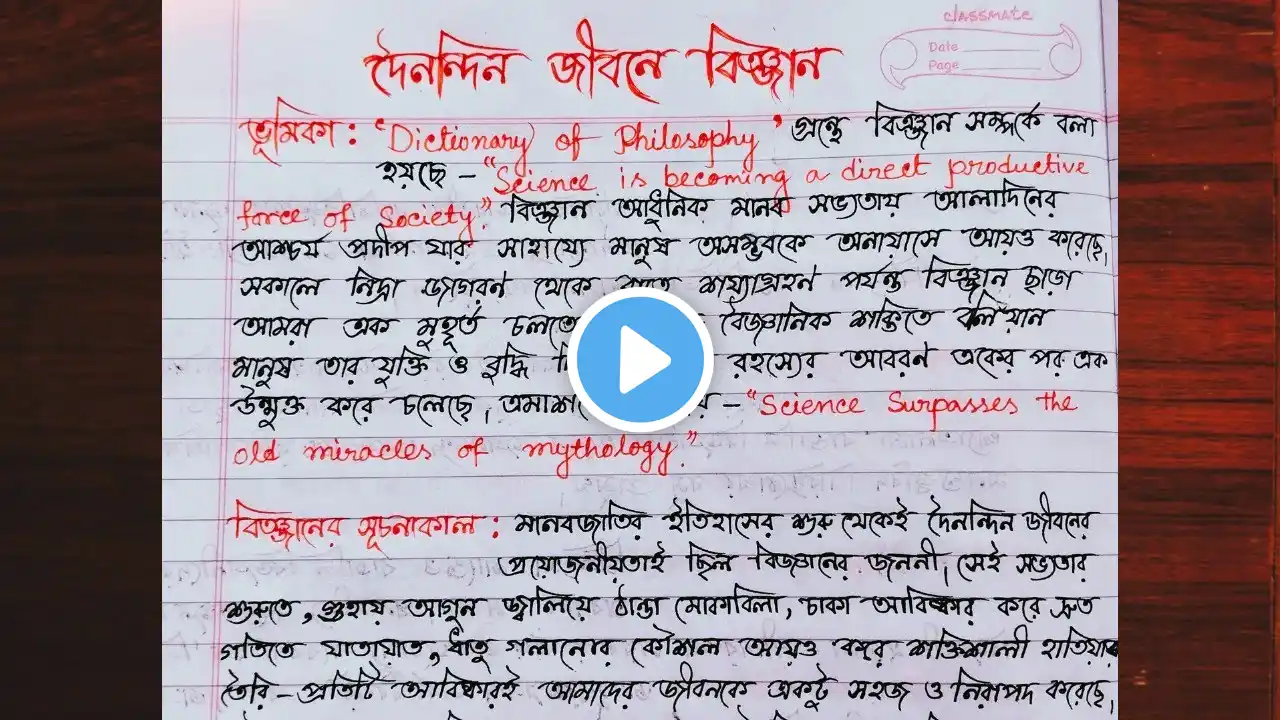 classmate
Date
Page
দৈনন্দিন জীবনে বিজ্ঞান
ভূমিকা : 'Dictionary of Philosophy' গ্রন্থে বিজ্ঞান সম্পর্কে বলা
হয়েছে – "Science is becoming a direct productive
force of Society". বিজ্ঞান আধুনিক মানব সভ্যতায় আলাদিনের
আশ্চর্য প্রদীপ যার সাহায্যে মানুষ অসম্ভবকে অনায়াসে আয়ত্ত করেছে।
সকালে নিদ্রা জাগরণ থেকে রাতে শয্যাগ্রহণ পর্যন্ত বিজ্ঞান ছাড়া
আমরা এক মুহূর্ত চলতে বৈজ্ঞানিক শক্তিতে বলিয়ান
মানুষ তার যুক্তি ও বুদ্ধি রহস্যের আবরণ একের পর এক
উন্মুক্ত করে চলেছে। – "Science Surpasses the
old miracles of mythology."
বিজ্ঞানের সূচনাকাল : মানবজাতির ইতিহাসের শুরু থেকেই দৈনন্দিন জীবনের
প্রয়োজনীয়তাই ছিল বিজ্ঞানের জননী। সেই সভ্যতার
শুরুতে, গুহায় আগুন জ্বালিয়ে ঠান্ডা মোকাবিলা, চাকা আবিষ্কার করে দ্রুত
গতিতে যাতায়াত, ধাতু গলানোর কৌশল আয়ত্ত করে শক্তিশালী হাতিয়ার
তৈরি – প্রতিটি আবিষ্কারই আমাদের জীবনকে একটু সহজ ও নিরাপদ করেছে।